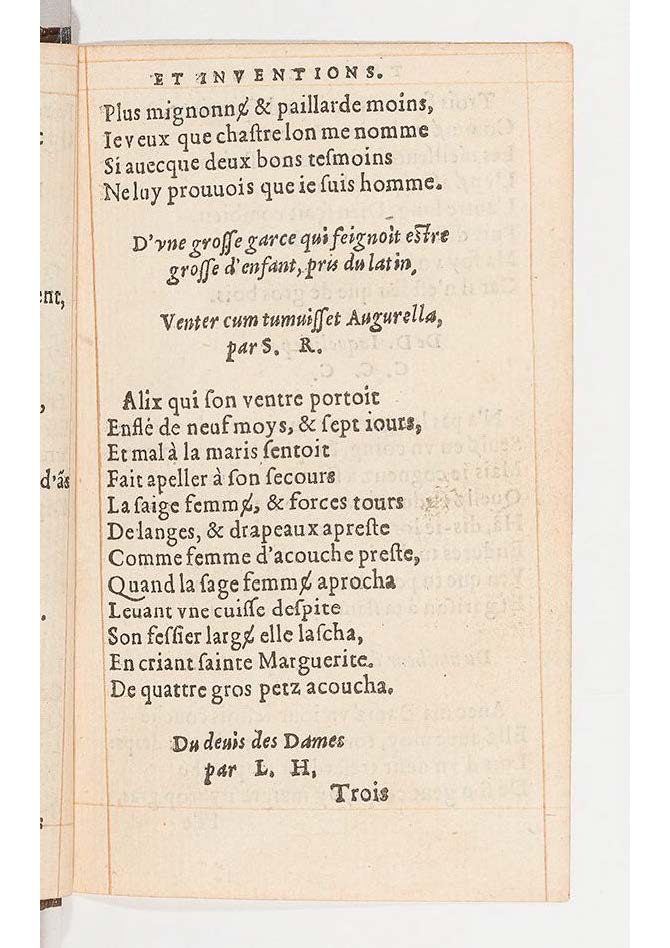 ET INVENTIONS.
Plus mignonnɇ & paillarde moins,
Ie veux que chaſtre lon me nomme
Si auecque deux bons teſmoins
Ne luy prouuois que ie ſuis homme.
D'vne groſſe garce qui feignoit eſtre
groſſe d'enfant, pris du latin,
Venter cum tumuiſſet Augurella,
par S. R.
Alix qui ſon ventre portoit
Enflé de neuf moys, & ſept iours,
Et mal à la maris ſentoit
Fait apeller à ſon ſecours
La ſaige femmɇ, & forces tours
De langes, & drapeaux apreſte
Comme femme d'acouche preſte,
Quand la ſage femmɇ aprocha
Leuant vne cuiſſe deſpite
Son feſſier largɇ elle laſcha,
En criant ſainte Marguerite.
De quattre gros petz acoucha.
Du deuis des Dames
par L. H.
Trois
ent,
,
d'ãs
.